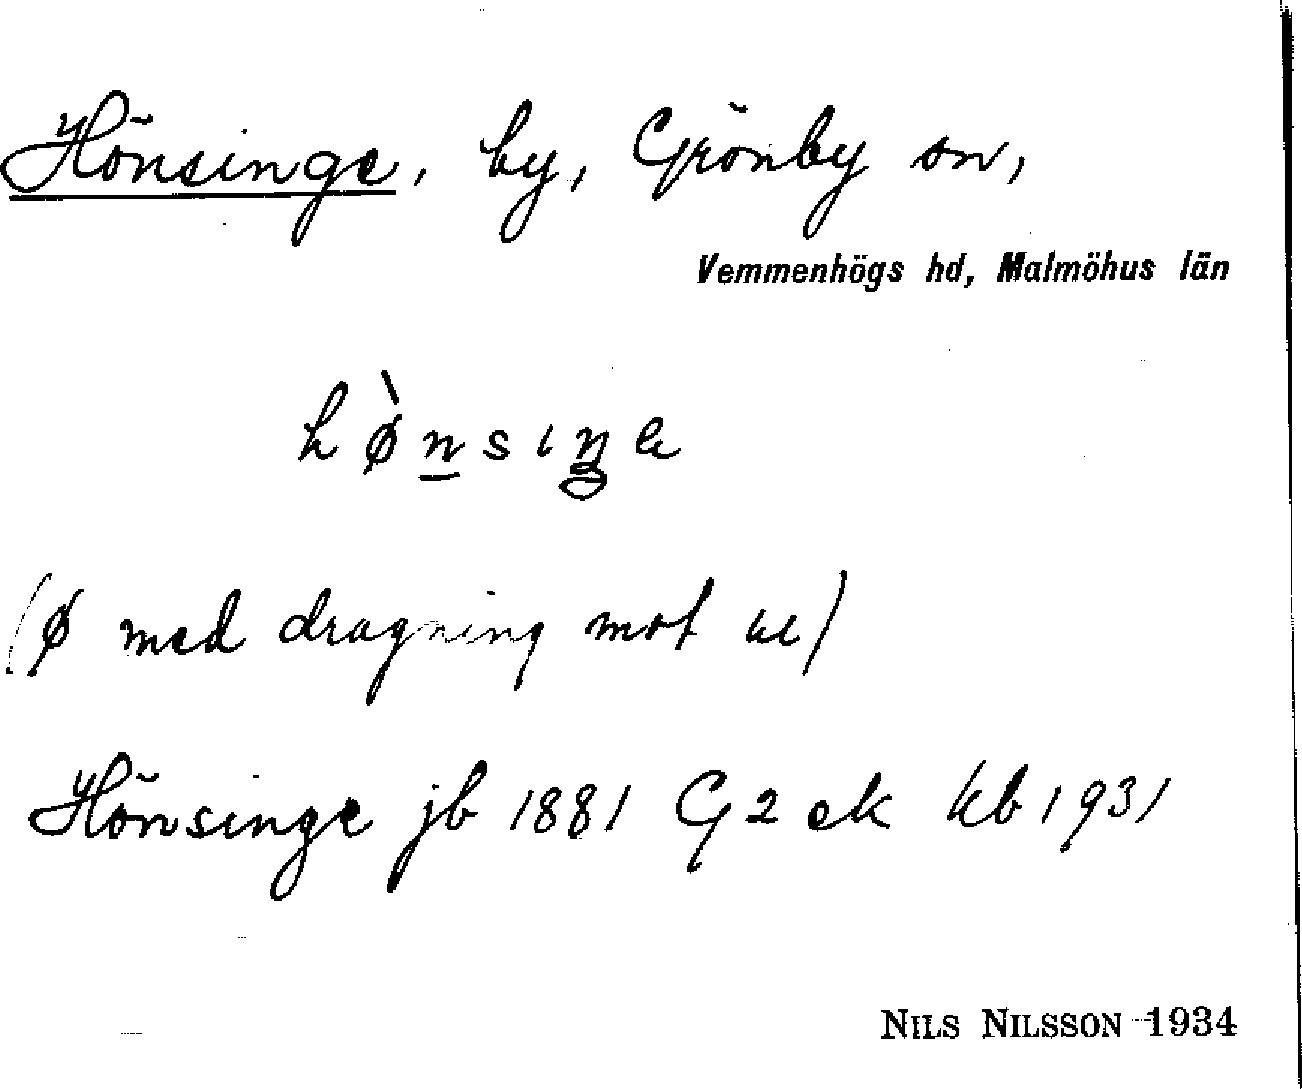 Hönsinge, by, Grönby sn,
Vemmenhögs hd, Malmöhus län
hø̀n̲sıŋe
(ø med dragning mot æ)
Hönsinge jb 1881 G2 ek kb 1931
NILS NILSSON 1934